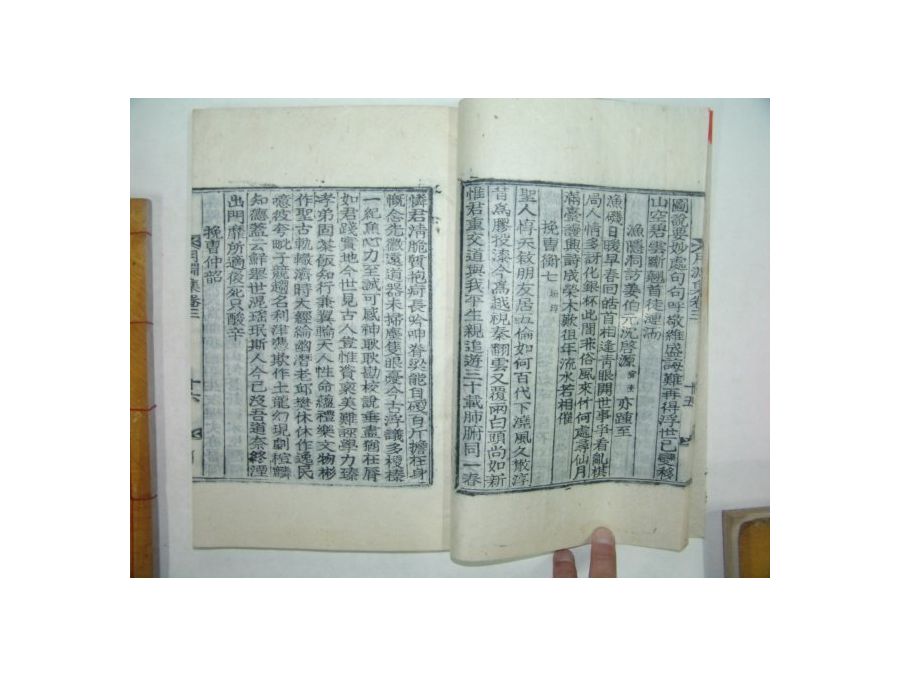 圖說要妙處句句呼敬維盛誨難再得浮世已變移
山空碧雲斷翹首徒漣洏
漁隱洞訪姜伯元沇啓源亦踵至
漁磯日暖早春回皓首相逢靑眼開世事爭看亂棋
局人情多訝化銀杯此間來俗風來竹何處尋仙月
滿臺讌興詩成榮木歎徂年流水若相催
挽曹衡七
聖人惇天敍朋友居五倫如何百代下澆風久散淳
昔爲膠投漆今爲越視秦翻雲又覆雨白頭尙如新
惟君重交道與我平生親追遊三十載肺腑同一春
憐君淸脆質抱痾長吟呻脊梁能自硬百斤擔在身
慨念先徽遠道器未掃塵隻眼慢今古浮議多稷榛
一紀焦心力至誠可感神耿耿勘校說垂盡猶在脣
如君踐實地今世見古人豈惟資稟美難誣學力臻
孝弟固茶飯知行兼翼輪天人性命蘊禮樂文物彬
作聖古軌轍濟時大經綸幽潛老邱樊休休作逸民
癡彼夸毗子競趨名利津憑欺作土龍幻現劇楦麟
知德蓋云鮮擧世混瑤珉斯人今已沒吾道奈終湮
出門靡所適後死只酸辛
挽曹仲韶
集卷三
十五
集卷三
十六